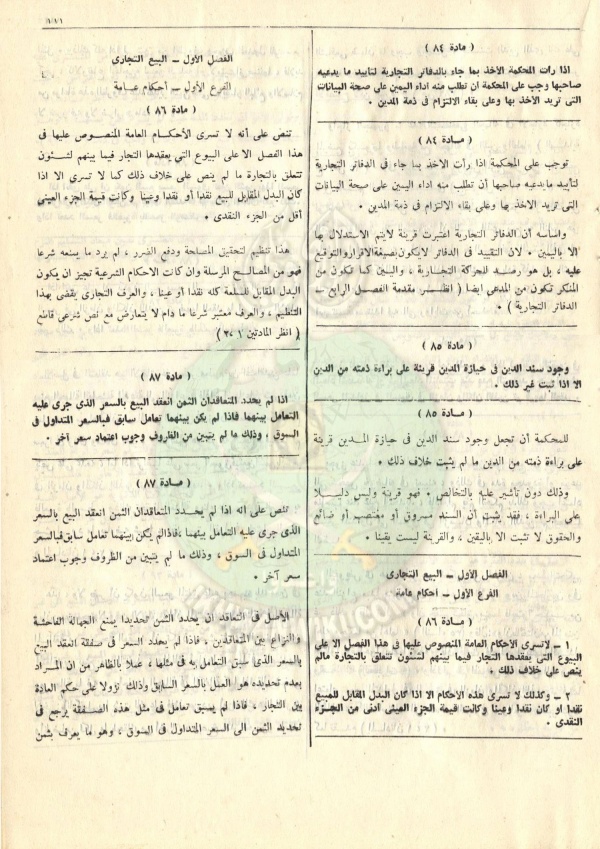 ( مادة ٨٤ )
اذا رأت المحكمة الأخذ بما جاء بالدفاتر التجارية لتأييد ما يدعيه
صاحبها وجب على المحكمة ان تطلب منه اداء اليمين على صحة البيانات
التى تريد الاخذ بها وعلى بقاء الالتزام فى ذمة المدين .
( مادة ٨٤ )
توجب على المحكمة اذا رأت الاخذ بما جاء فى الدفاتر التجارية
لتأييد ما يدعيه صاحبها أن تطلب منه اداء اليمين على صحة البيانات
التى تريد الاخذ بها وعلى بقاء الالتزام فى ذمة المدين .
واساسه أن الدفاتر التجارية اعتبرت قرينة لايتم الاستدلال بها
الا باليمين . لان التقييد فى الدفاتر لايكون بصيغة الاقرار والتوقيع
عليه ، بل هو رصد للحركة التجارية ، واليمين كما تكون من
المنكر تكون من المدعى ايضا ( انظر مقدمة الفصل الرابع —
الدفاتر التجارية ) .
( مادة ٨٥ )
وجود سند الدين فى حيازة المدين قرينة على براءة ذمته من الدين
الا اذا ثبت غير ذلك .
( مادة ٨٥ )
للمحكمة أن تجعل وجود سند الدين فى حيازة المدين قرينة
على براءة ذمته من الدين ما لم يثبت خلاف ذلك .
وذلك دون تأشير عليه بالتخالص . فهو قرينة وليس دليلا
على البراءة ، فقد يثبت أن السند مسروق أو مغتصب أو ضائع
والحقوق لا تثبت الا باليقين ، والقرينة ليست يقينا .
الفصل الأول — البيع التجارى
الفرع الأول — احكام عامة
( مادة ٨٦ )
١ — لا تسرى الأحكام العامة المنصوص عليها فى هذا الفصل الا على
البيوع التى يعقدها التجار فيما بينهم لشئون تتعلق بالتجارة مالم
ينص على خلاف ذلك .
٢ — وكذلك لا تسرى هذه الاحكام الا اذا كان البدل المقابل للمبيع
نقدا او كان نقدا وعينا وكانت قيمة الجزء العينى ادنى من الجزء
النقدى .
الفصل الأول — البيع التجارى
الفرع الأول — أحكام عامة
( مادة ٨٦ )
تنص على أنه لا تسرى الأحكام العامة المنصوص عليها فى
هذا الفصل الا على البيوع التى يعقدها التجار فيما بينهم لشئون
تتعلق بالتجارة ما لم ينص على خلاف ذلك كما لا تسرى الا اذا
كان البدل المقابل للبيع نقدا أو نقدا وعينا وكانت قيمة الجزء العينى
أقل من الجزء النقدى .
هذا تنظيم لتحقيق المصلحة ودفع الضرر ، لم يرد ما يمنعه شرعا
فهو من المصالح المرسلة وان كانت الاحكام الشرعية تجيز ان يكون
البدل المقابل للسلعة كله نقدا أو عينا ، والعرف التجارى يقضى بهذا
التنظيم ، والعرف معتبر شرعا ما دام لا يتعارض مع نص شرعى قاطع
( انظر المادتين ١ ، ٢ )
( مادة ٨٧ )
اذا لم يحدد المتعاقدان الثمن انعقد البيع بالسعر الذى جرى عليه
التعامل بينهما فاذا لم يكن بينهما تعامل سابق فبالسعر المتداول فى
السوق ، وذلك ما لم يتبين من الظروف وجوب اعتماد سعر آخر .
( مادة ٨٧ )
تنص على أنه اذا لم يحدد المتعاقدان الثمن انعقد البيع بالسعر
الذى جرى عليه التعامل بينهما ، فاذا لم يكن بينهما تعامل سابق فبالسعر
المتداول فى السوق ، وذلك ما لم يتبين من الظروف وجوب اعتماد
سعر آخر .
الأصل فى التعاقد أن يحدد الثمن تحديدا يمنع الجهالة الفاحشة
والنزاع بين المتعاقدين . فاذا لم يحدد السعر فى صفقة انعقد البيع
بالسعر الذى سبق التعامل به فى مثلها ، عملا بالظاهر من ان المراد
بعدم تحديده هو العمل بالسعر السابق وذلك نزولا على حكم العادة
بين التجار ، فاذا لم يسبق تعامل فى مثل هذه الصفقة يرجع فى
تحديد الثمن الى السعر المتداول فى السوق ، وهو ما يعرف بثمن